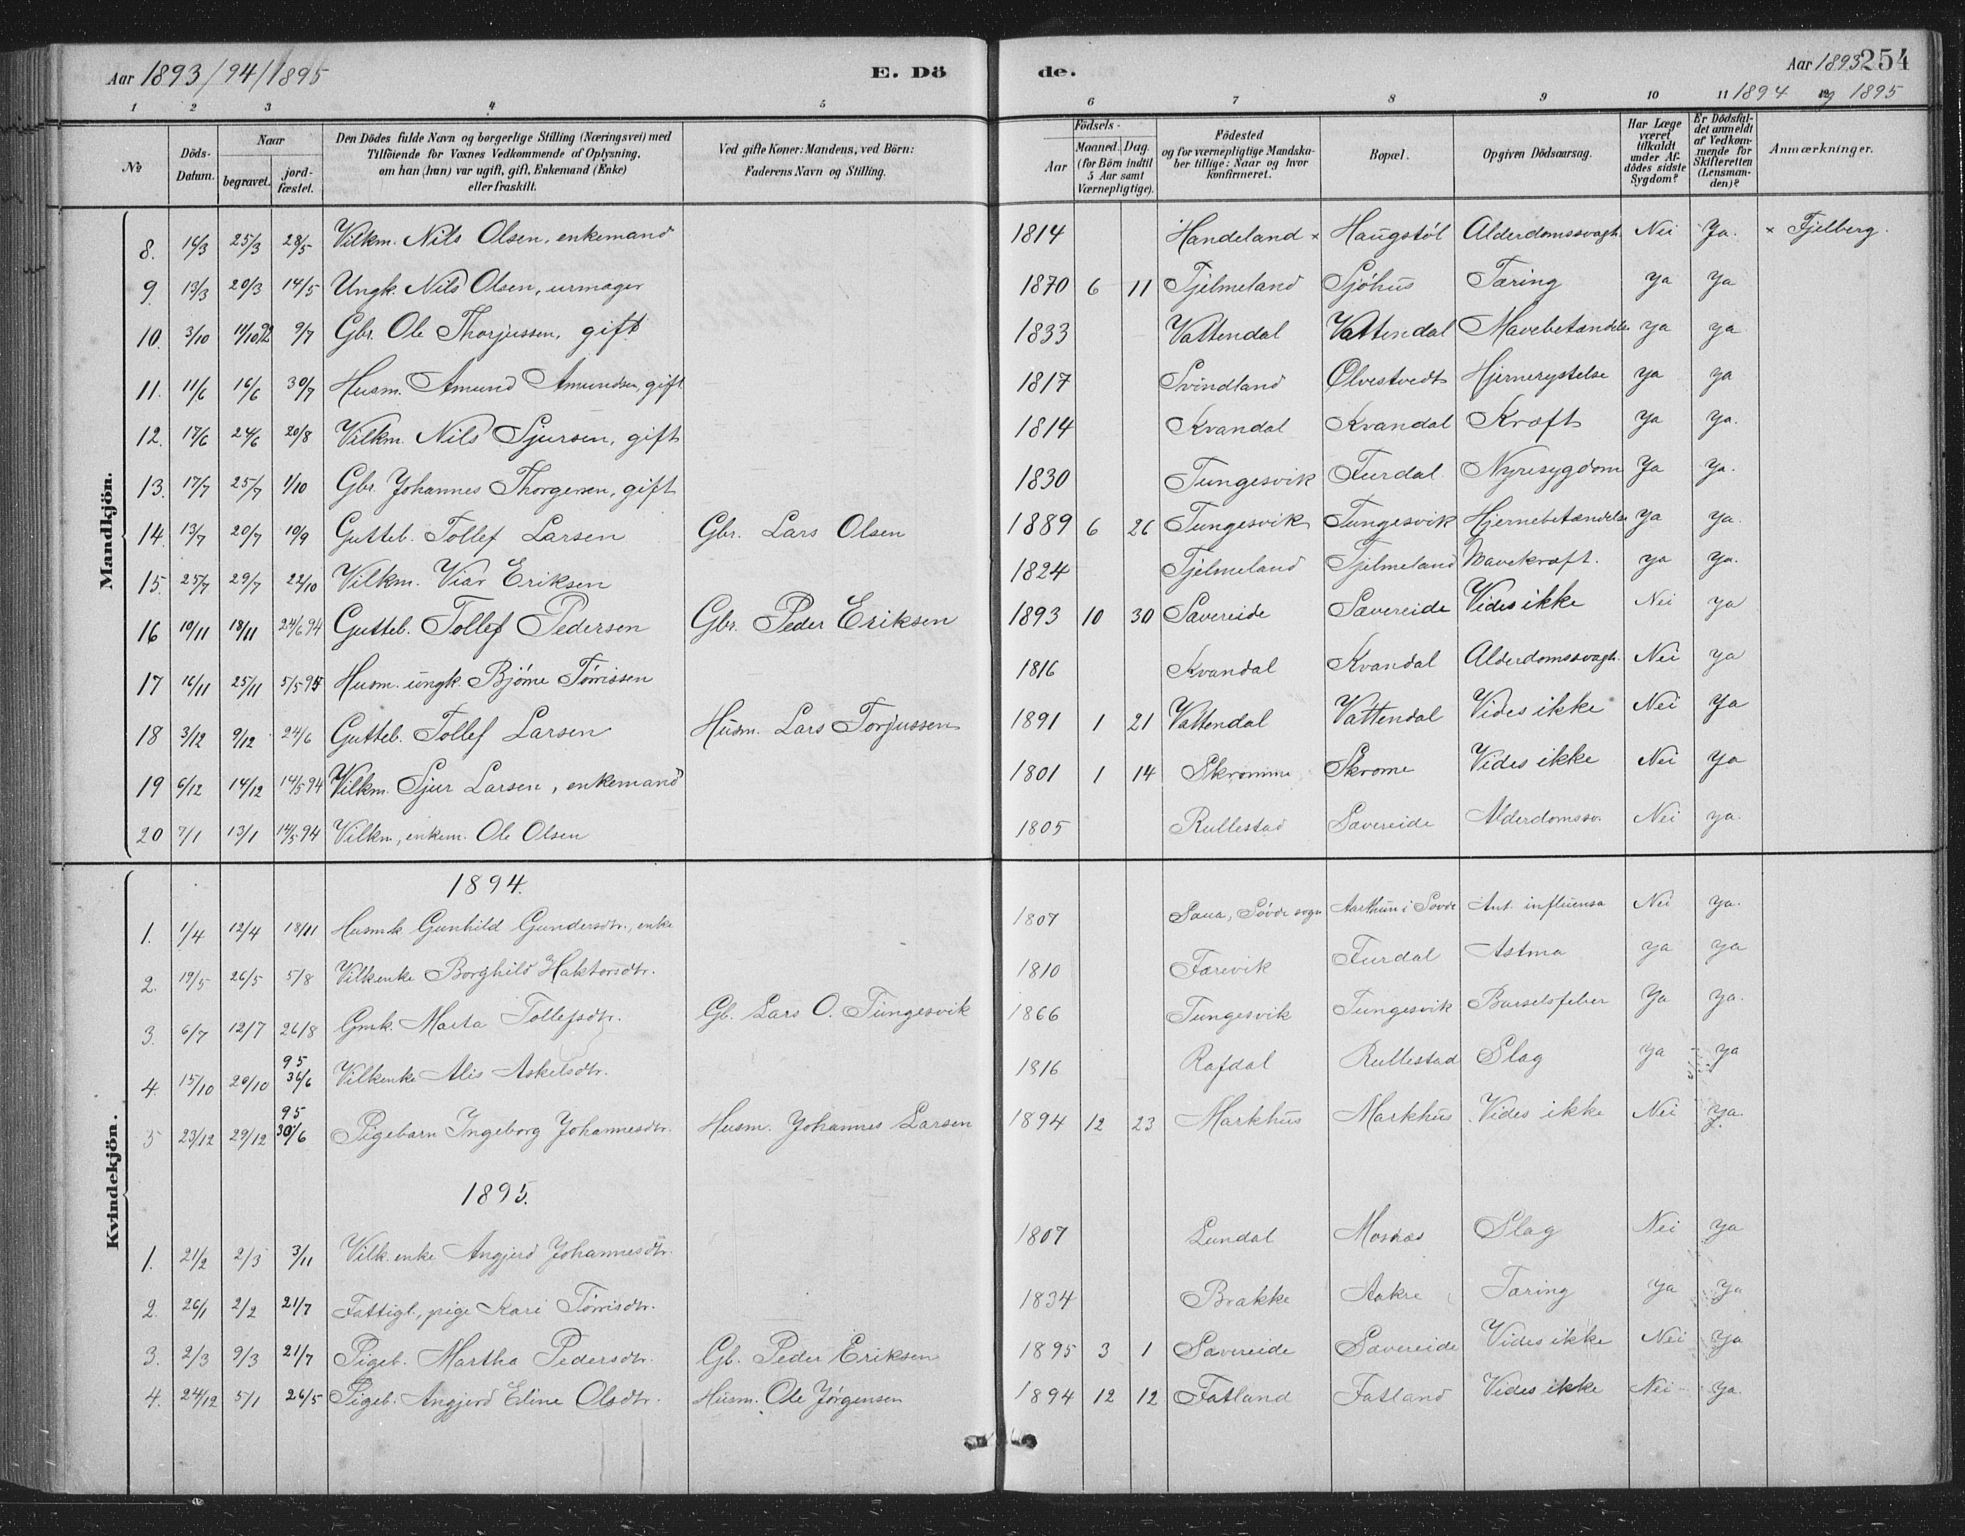 Aar 1893/94/1895 E. Dö de. Aar 1893 254
1894 og 1895
1 2 3 4 5 6 7 8 9 10 11 12
No Döds-Datum. Naar begravet. jord-fæstet. Den Dödes fulde Navn og borgerlige Stilling (Næringsvei) med Tilföiende for Voxnes Vedkommende af Oplysning, om han (hun) var ugift, gift, Enkemand (Enke) eller fraskilt. Ved gifte Koner: Mandens, ved Börn: Faderens Navn og Stilling. Födsels- Aar Maaned. Dag. (for Börn indtil 5 Aar samt Værnepligtige). Födested og for værnepligtige Mandskaber tillige: Naar og hvor konfirmeret. Bopæl. Opgiven Dödsaarsag. Har Læge været tilkaldt under Afdödes sidste Sygdom? Er Dödsfaldet anmeldt af Vedkommende for Skifteretten (Lensmanden)? Anmærkninger.
Mandkjön.
8. 16/3 25/3 28/5 Vilkm. Nils Olsen, enkemand 1814 Handeland × Haugstøl Alderdomssvagh. Nei Ja. × Fjelberg.
9. 13/3 20/3 14/5 Ungk. Nils Olsen, urmager 1870 6 11 Tjelmeland Sjöhus Tæring Ja Ja
10. 3/10 11/10 92 9/7 Gbr. Ole Thorjussen, gift 1833 Vattendal Vattendal Mavebetændelse Ja Ja
11. 11/6 16/6 30/7 Husm. Amund Amundsen, gift 1817 Svindland Ølvestvedt Hjernerystelse Ja Ja
12. 17/6 24/6 20/8 Vilkm. Nils Sjursen, gift 1814 Kvandal Kvandal Kræft Ja Ja.
13. 17/7 25/7 1/10 Gbr. Johannes Thorgersen, gift 1830 Tungesvik Furdal Nyresygdom Ja Ja.
14. 13/7 20/7 10/9 Gutteb. Tollef Larsen Gbr. Lars Olsen 1889 6 26 Tungesvik Tungesvik Hjernebetændelse Ja Ja.
15. 25/7 29/7 22/10 Vilkm. Viar Eriksen 1824 Tjelmeland Tjelmeland Mavekræft. Ja Ja.
16 10/11 18/11 24/6 94 Gutteb. Tollef Pedersen Gbr. Peder Eriksen 1893 10 30 Sævereide Sævereide Vides ikke Nei Ja
17 16/11 25/11 5/5 95 Husm. ungk. Bjørne Tørrissen 1816 Kvandal Kvandal Alderdomssvagh. Nei Ja
18 3/12 9/12 24/6 Gutteb. Tollef Larsen Husm. Lars Torjussen 1891 1 21 Vattendal Vattendal Vides ikke Nei Ja
19 6/12 14/12 14/5 94 Vilkm. Sjur Larsen, enkemand 1801 1 14 Skromme Skrome Vides ikke Nei Ja
20 7/1 13/1 14/5 94 Vilkm, enkem. Ole Olsen 1805 Rullestad Sævereide Alderdomssv. Nei Ja.
Kvindekjön.
1894.
1. 1/4 12/4 18/11 Husmk Gunhild Gundersdtr., enke 1807 Saua, Søvde sogn Aarthun i Søvde Ant. influensa Nei Ja.
2. 19/5 26/5 5/8 Vilkenke Borghild Haktorsdtr. 1810 Farevik Furdal Astma Ja Ja
3. 6/7 12/7 26/8 Gmk. Marta Tollefsdtr. Gb. Lars O. Tungesvik 1866 Tungesvik Tungesvik Barselsfeber Ja Ja.
4. 15/10 20/10 95 30/6 Vilkenke Alis Askelsdtr. 1816 Rafdal Rullestad Slag Ja Ja
5 23/12 29/12 95 30/6 Pigebarn Ingeborg Johannesdtr. Husm. Johannes Larsen 1894 12 23 Markhus Markhus Vides ikke Nei Ja.
1895.
1. 21/2 2/3 3/11 Vilk. enke Angjerd Johannesdtr. 1807 Lundal Mosnæs Slag Nei Ja
2. 26/1 2/2 21/7 Fattigl., pige Kari Tørrisdtr. 1834 Brakke Aakre Tæring Ja Ja
3. 2/3 9/3 21/7 Pigeb. Martha Pedersdtr. Gb. Peder Eriksen 1895 3 1 Sævereide Sævereide Vides ikke Nei Ja
4. 24/12 5/1 26/5 Pigeb. Angjerd Eline Olsdtr. Husm. Ole Jörgensen 1894 12 12 Fatland Fatland Vides ikke Nei Ja.